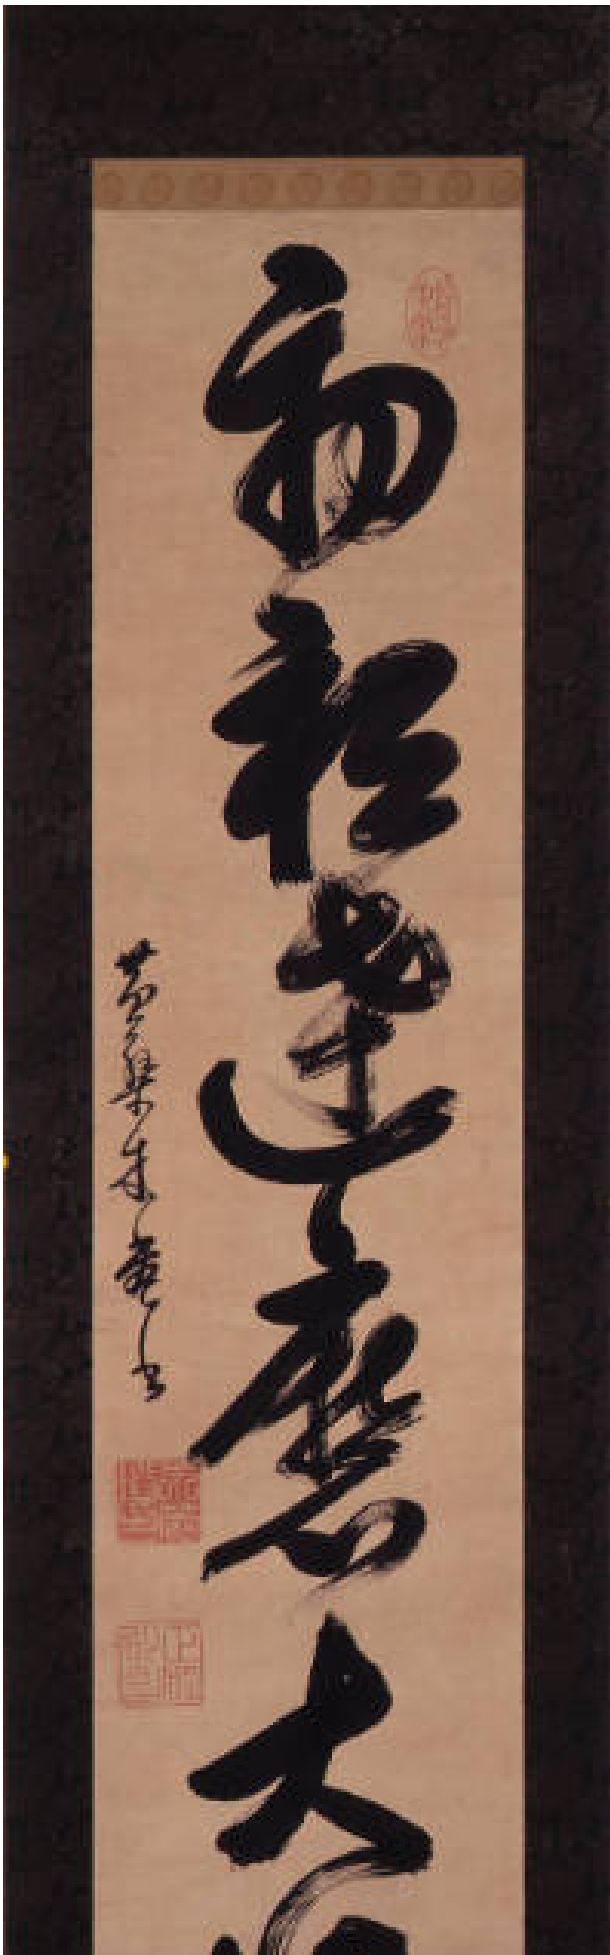 初祖達磨大
黄檗木菴書